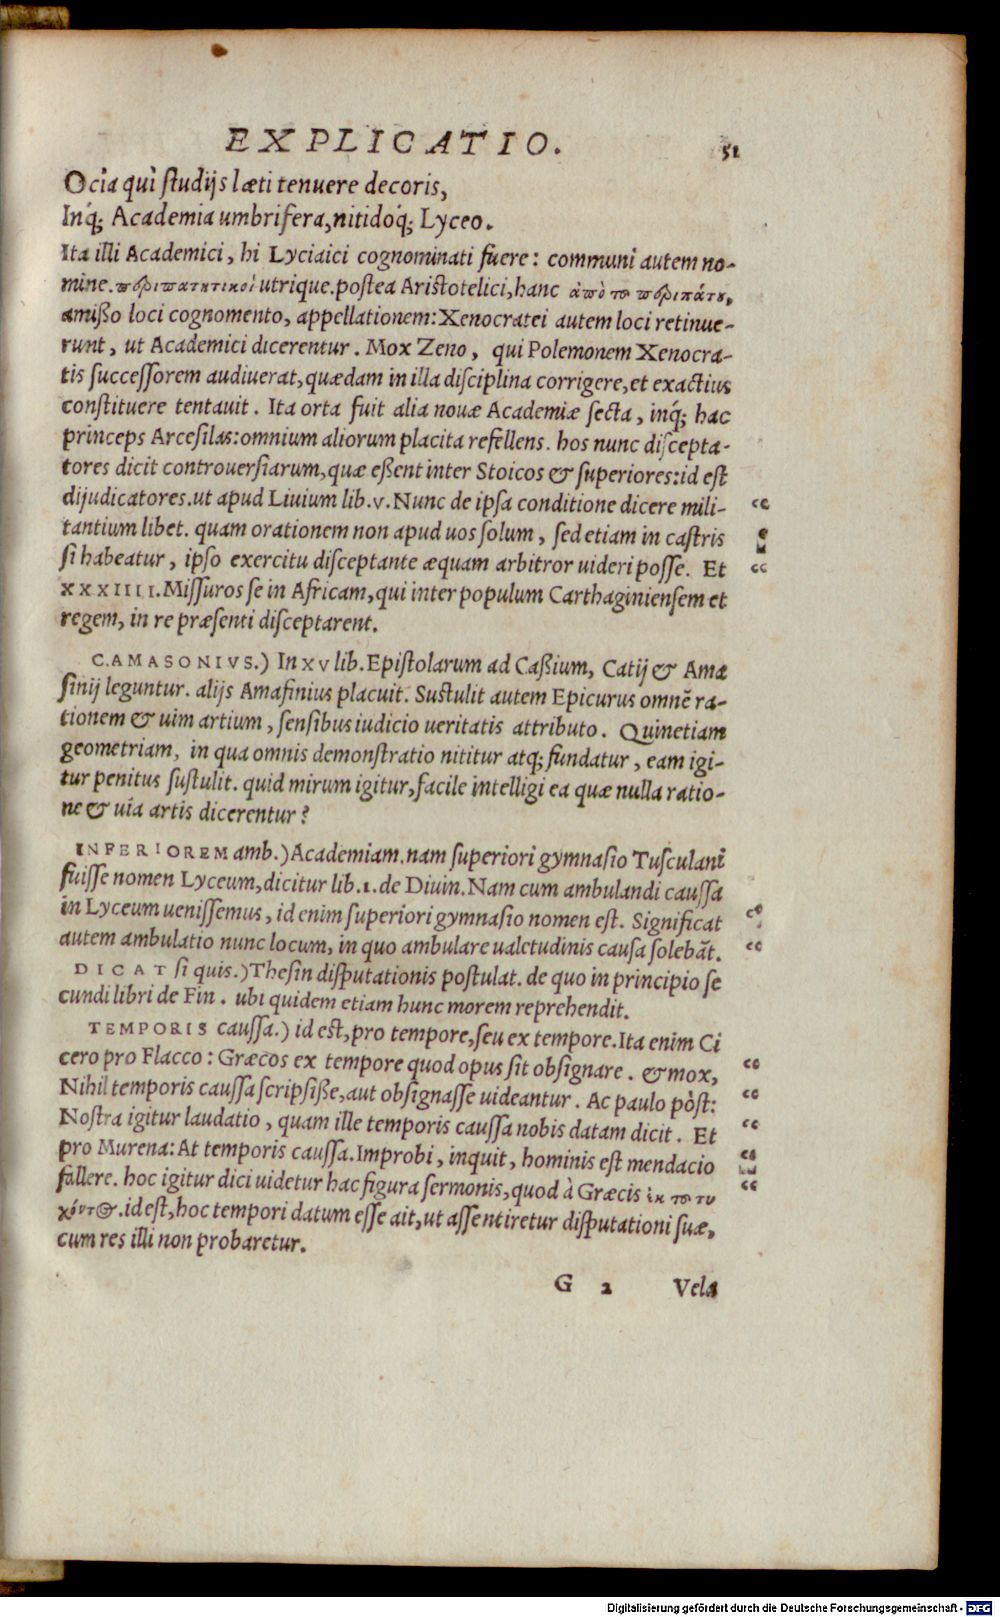 EXPLICATIO. 51
Ocia quì studijs læti tenuere decoris,
Inq́; Academia umbrifera, nitidoq́; Lyceo.
Ita illi Academici, hi Lyciaici cognominati fuere: communi autem no-
mine. περιπατητικοὶ utrique. postea Aristotelici, hanc ἀπὸ τοῦ περιπάτου,
amißo loci cognomento, appellationem: Xenocratei autem loci retinue-
runt, ut Academici dicerentur. Mox Zeno, qui Polemonem Xenocra-
tis successorem audiuerat, quædam in illa disciplina corrigere, et exactius
constituere tentauit. Ita orta fuit alia nouæ Academiæ secta, inq́; hac
princeps Arcesilas: omnium aliorum placita refellens. hos nunc discepta-
tores dicit controuersiarum, quæ eßent inter Stoicos & superiores: id est
dijudicatores. ut apud Liuium lib. v. Nunc de ipsa conditione dicere mili- “
tantium libet. quam orationem non apud uos solum, sed etiam in castris “
si habeatur, ipso exercitu disceptante æquam arbitror uideri posse. Et “
XXXIIII. Missuros se in Africam, qui inter populum Carthaginiensem et
regem, in re præsenti disceptarent.
C. AMASONIVS.) In XV lib. Epistolarum ad Caßium, Catij & Amæ
sinij leguntur. alijs Amafinius placuit. Sustulit autem Epicurus omnē ra-
tionem & uim artium, sensibus iudicio ueritatis attributo. Quinetiam
geometriam, in qua omnis demonstratio nititur atq; fundatur, eam igi-
tur penitus sustulit. quid mirum igitur, facile intelligi ea quæ nulla ratio-
ne & uia artis dicerentur?
INFERIOREM amb.) Academiam. nam superiori gymnasio Tusculani
fuisse nomen Lyceum, dicitur lib. 1. de Diuin. Nam cum ambulandi caussa
in Lyceum uenissemus, id enim superiori gymnasio nomen est. Significat “
autem ambulatio nunc locum, in quo ambulare ualetudinis causa solebāt. “
DICAT si quis.) Thesin disputationis postulat. de quo in principio se
cundi libri de Fin. ubi quidem etiam hunc morem reprehendit.
TEMPORIS caussa.) id est, pro tempore, seu ex tempore. Ita enim Ci
cero pro Flacco: Græcos ex tempore quod opus sit obsignare. & mox, “
Nihil temporis caussa scripsiße, aut obsignasse uideantur. Ac paulo pòst: “
Nostra igitur laudatio, quam ille temporis caussa nobis datam dicit. Et “
pro Murena: At temporis caussa. Improbi, inquit, hominis est mendacio “
fallere. hoc igitur dici uidetur hac figura sermonis, quod à Græcis ἐκ τοῦ τυ “
χόντος. id est, hoc tempori datum esse ait, ut assentiretur disputationi suæ,
cum res illi non probaretur.
G 2 Vela
Digitalisierung gefördert durch die Deutsche Forschungsgemeinschaft - DFG